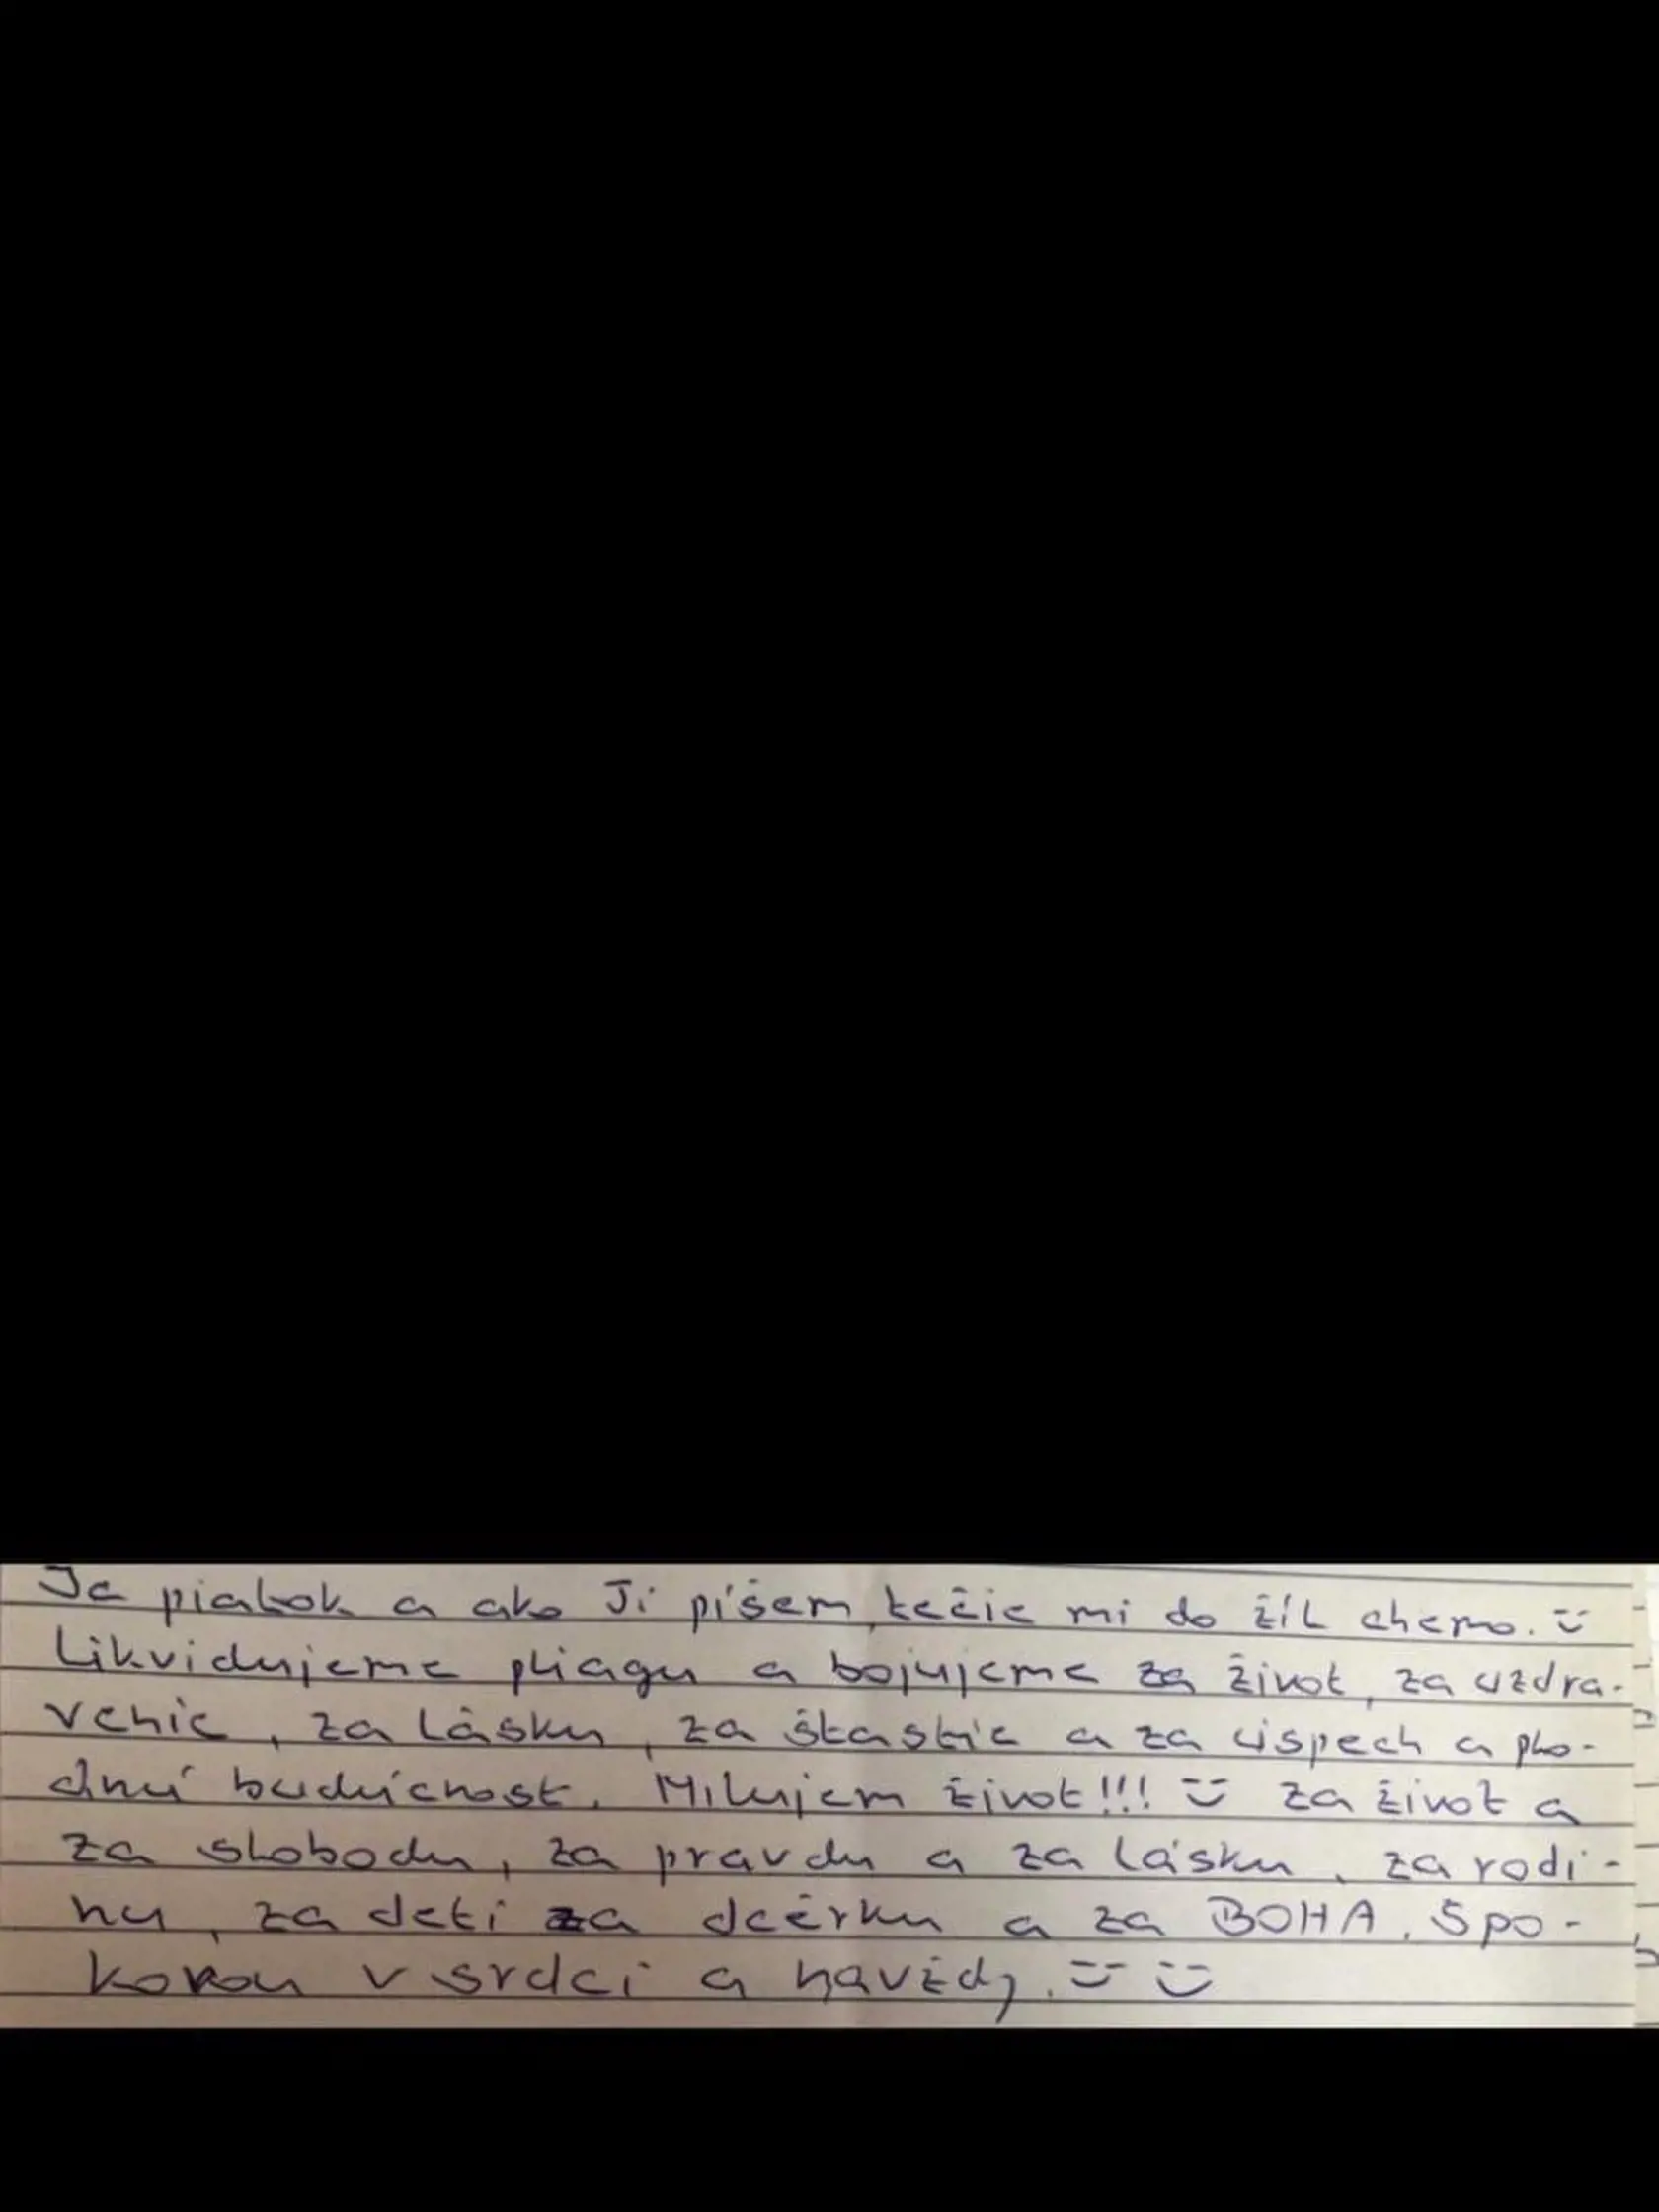 Je piatok a ako Ji píšem, tečie mi do žíl chemo. :)
Likvidujeme pliagu a bojujeme za život, za uzdra-
venie, za lásku, za štastie a za úspech a plo-
dnú budúcnost. Milujem život!!! :) za život a
za slobodu, za pravdu a za lásku, za rodi-
nu, za deti za dcérku a za BOHA. S po-
korou v srdci a navždy. :) :)